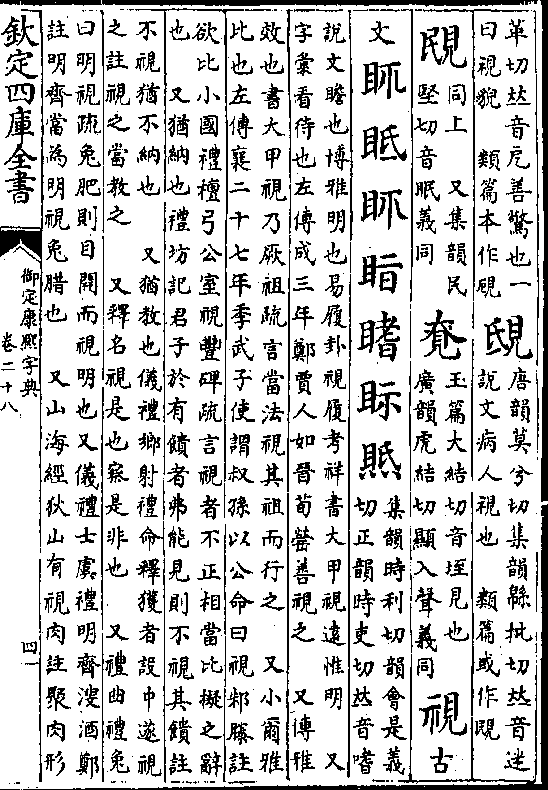 革切𠀤音戹善驚也一
曰視貌 類篇本作
唐韻莫兮切集韻緜批切𠀤音迷
說文病人視也 類篇或作
同上 又集韻民
堅切音眠義同
玉篇大結切音垤見也
廣韻虎結切顯入聲義同
視古
文眎眡
集韻時利切韻會是義
切正韻時吏切𠀤音嗜
說文瞻也博雅明也易履卦視履考祥書大甲視遠惟明 又
字彙看待也左傳成三年鄭賈人如晉荀罃善視之 又博雅
效也書大甲視乃厥祖疏言當法視其祖而行之 又小爾雅
比也左傳襄二十七年季武子使謂叔孫以公命曰視邾滕註
欲比小國禮檀弓公室視豐碑疏言視者不正相當比擬之辭
也 又猶納也禮坊記君子於有饋者弗能見則不視其饋註
不視猶不納也 又猶教也儀禮鄉射禮命釋獲者設中遂視
之註視之當教之 又釋名視是也察是非也 又禮曲禮兔
曰明視疏兔肥則目開而視明也又儀禮士虞禮明齊溲酒鄭
註明齊當為明視兔腊也 又山海經狄山有視肉註聚肉形
欽定四庫全書
御定康熙字典
卷二十八
四一